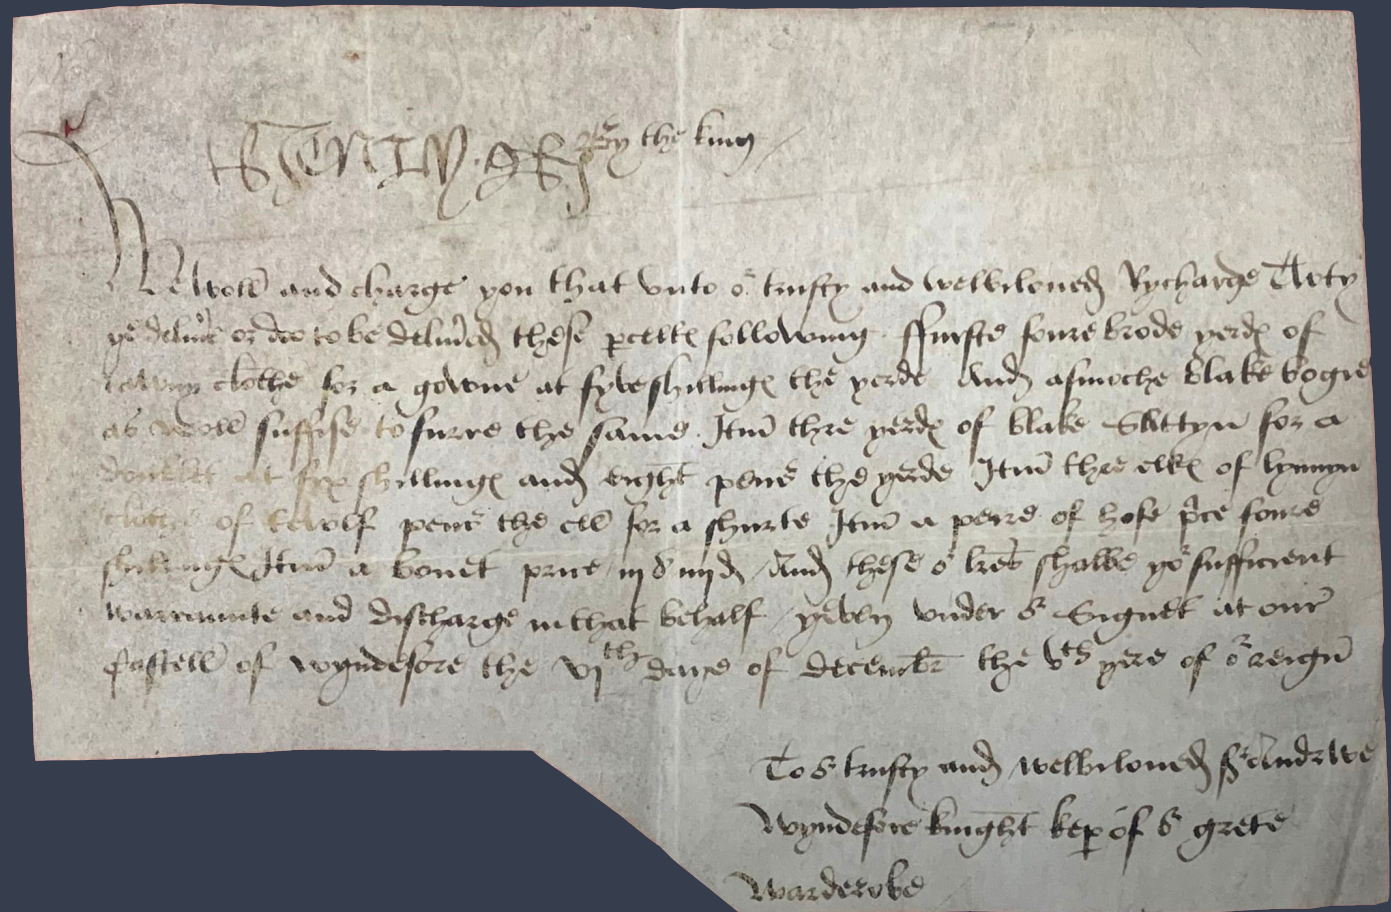 HENRY R By the king
We woll and charge you that vnto oʳ trusty and welbiloued Rycharde
ye delyuer or doo to be delyuͥed these pcelles following ffurste foure brode yerdes of
tawny clothe for a gowne at fyve shillinges the yerde And asmoche blake bogie
as woll suffise to furre the same Itm̄ thre yerdes of blake Sattyn for a
doublet at syx shillinges and eight pence the yerde Itm̄ thre elles of lynnyn
clothe of twolf pence the ell for a shurte Itm̄ a peire of hose pͥce foure
shillinges Itm̄ a bonet price iij s iiij d And these oʳ lr̄es shalbe yoʳ sufficient
warraunte and discharge in that behalf yeven vnder oʳ Signet at our
Castell of wyndesore the vjᵗʰ daye of decembr̄ the vᵗʰ yere of oʳ reign̄
To oʳ trusty and welbiloued Sʳ Andrewe
Wyndesore knight kep of oʳ grete
Warderobe